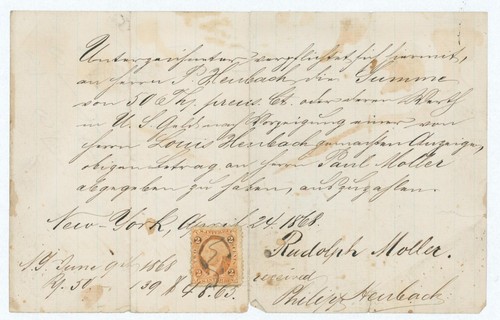 Unterzeichneter verpflichtet sich hiermit,
an Herrn P. Heubach die Summe
von 50 Th. preuss. Ct. oder deren Werth
in U. S. Geld nach Vorzeigung einer von
Herrn Louis Heubach gemachten Anzeige,
obigen Betrag an Herrn Paul Moller
abgegeben zu haben, auszuzahlen.
New-York, April 24. 1868.
Rudolph Moller.
N.Y. June 9th 1868
received
50 139 $ 48.63.
Philipp Heubach
2 2